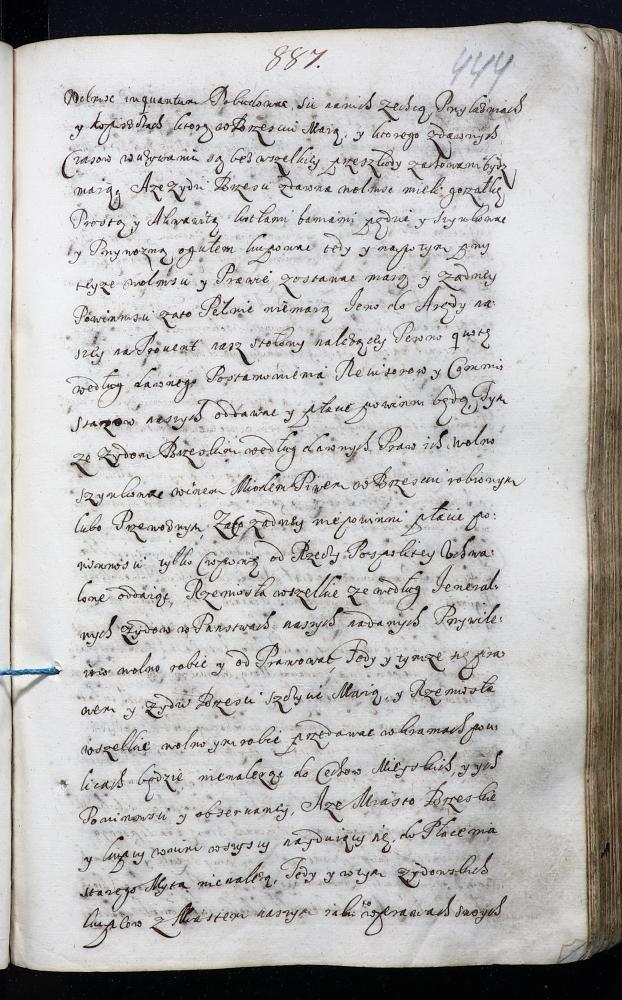 887.
444
Wolność inquantum Pobudować się na nich zechcą Przy łaźniach
y kopiszczach ktorą w Brzesciu Maią, y ktorego zdawnych
Czasow w używaniu są bez wszelkiey przeszkody zachowani bydź
maią, A że żydzi Brzescy zdawna wolność mieli gorzałkę
Prostą y Akwawitę kotłami baniami pędzić y szynkować
y Przywozną ogułem kupować tedy y napotym przy
teyże wolności y Prawie zostawać maią y żadney
Powinności zato Pełnić niemaią Jeno do Arędy na=
szey na Prowent nasz stołowy należącey Pewną quotę
według dawnego Postanowienia Rewisorow y Commis
sarzow naszych oddawać y płacić powinni będą, Tym
że żydom Brzeskim według dawnych Praw ich wolno
szynkować winem Miodem Piwem w Brzesciu robionym
lubo Przewoznym, Zaco żadney niepowinni płacić po=
winności tylko Czopowe od Rzeczy Pospolitey Uchwa=
lone oddaiąc, Rzemiosła wszelkie że według Jeneral=
nych żydow w Państwach naszych nadanych Przywile=
iow wolno robić y od Prawować Tedy y tymże się pra
wem y żydzi Brzescy szczycić Maią, y Rzemiosła
wszelkie wolno ym robić przedawać w kramach po u=
licach będzie nienależąc do Cechow Mieyskich, y ych
Powinności y observancij, A że Miasto Brzeskie
y kupcy w nim wszyscy nayduiący się, do Płacenia
starego Myta nienależą, Tedy y wtym żydowskich
kupcow z Miastem naszym iako w sprawach swoych